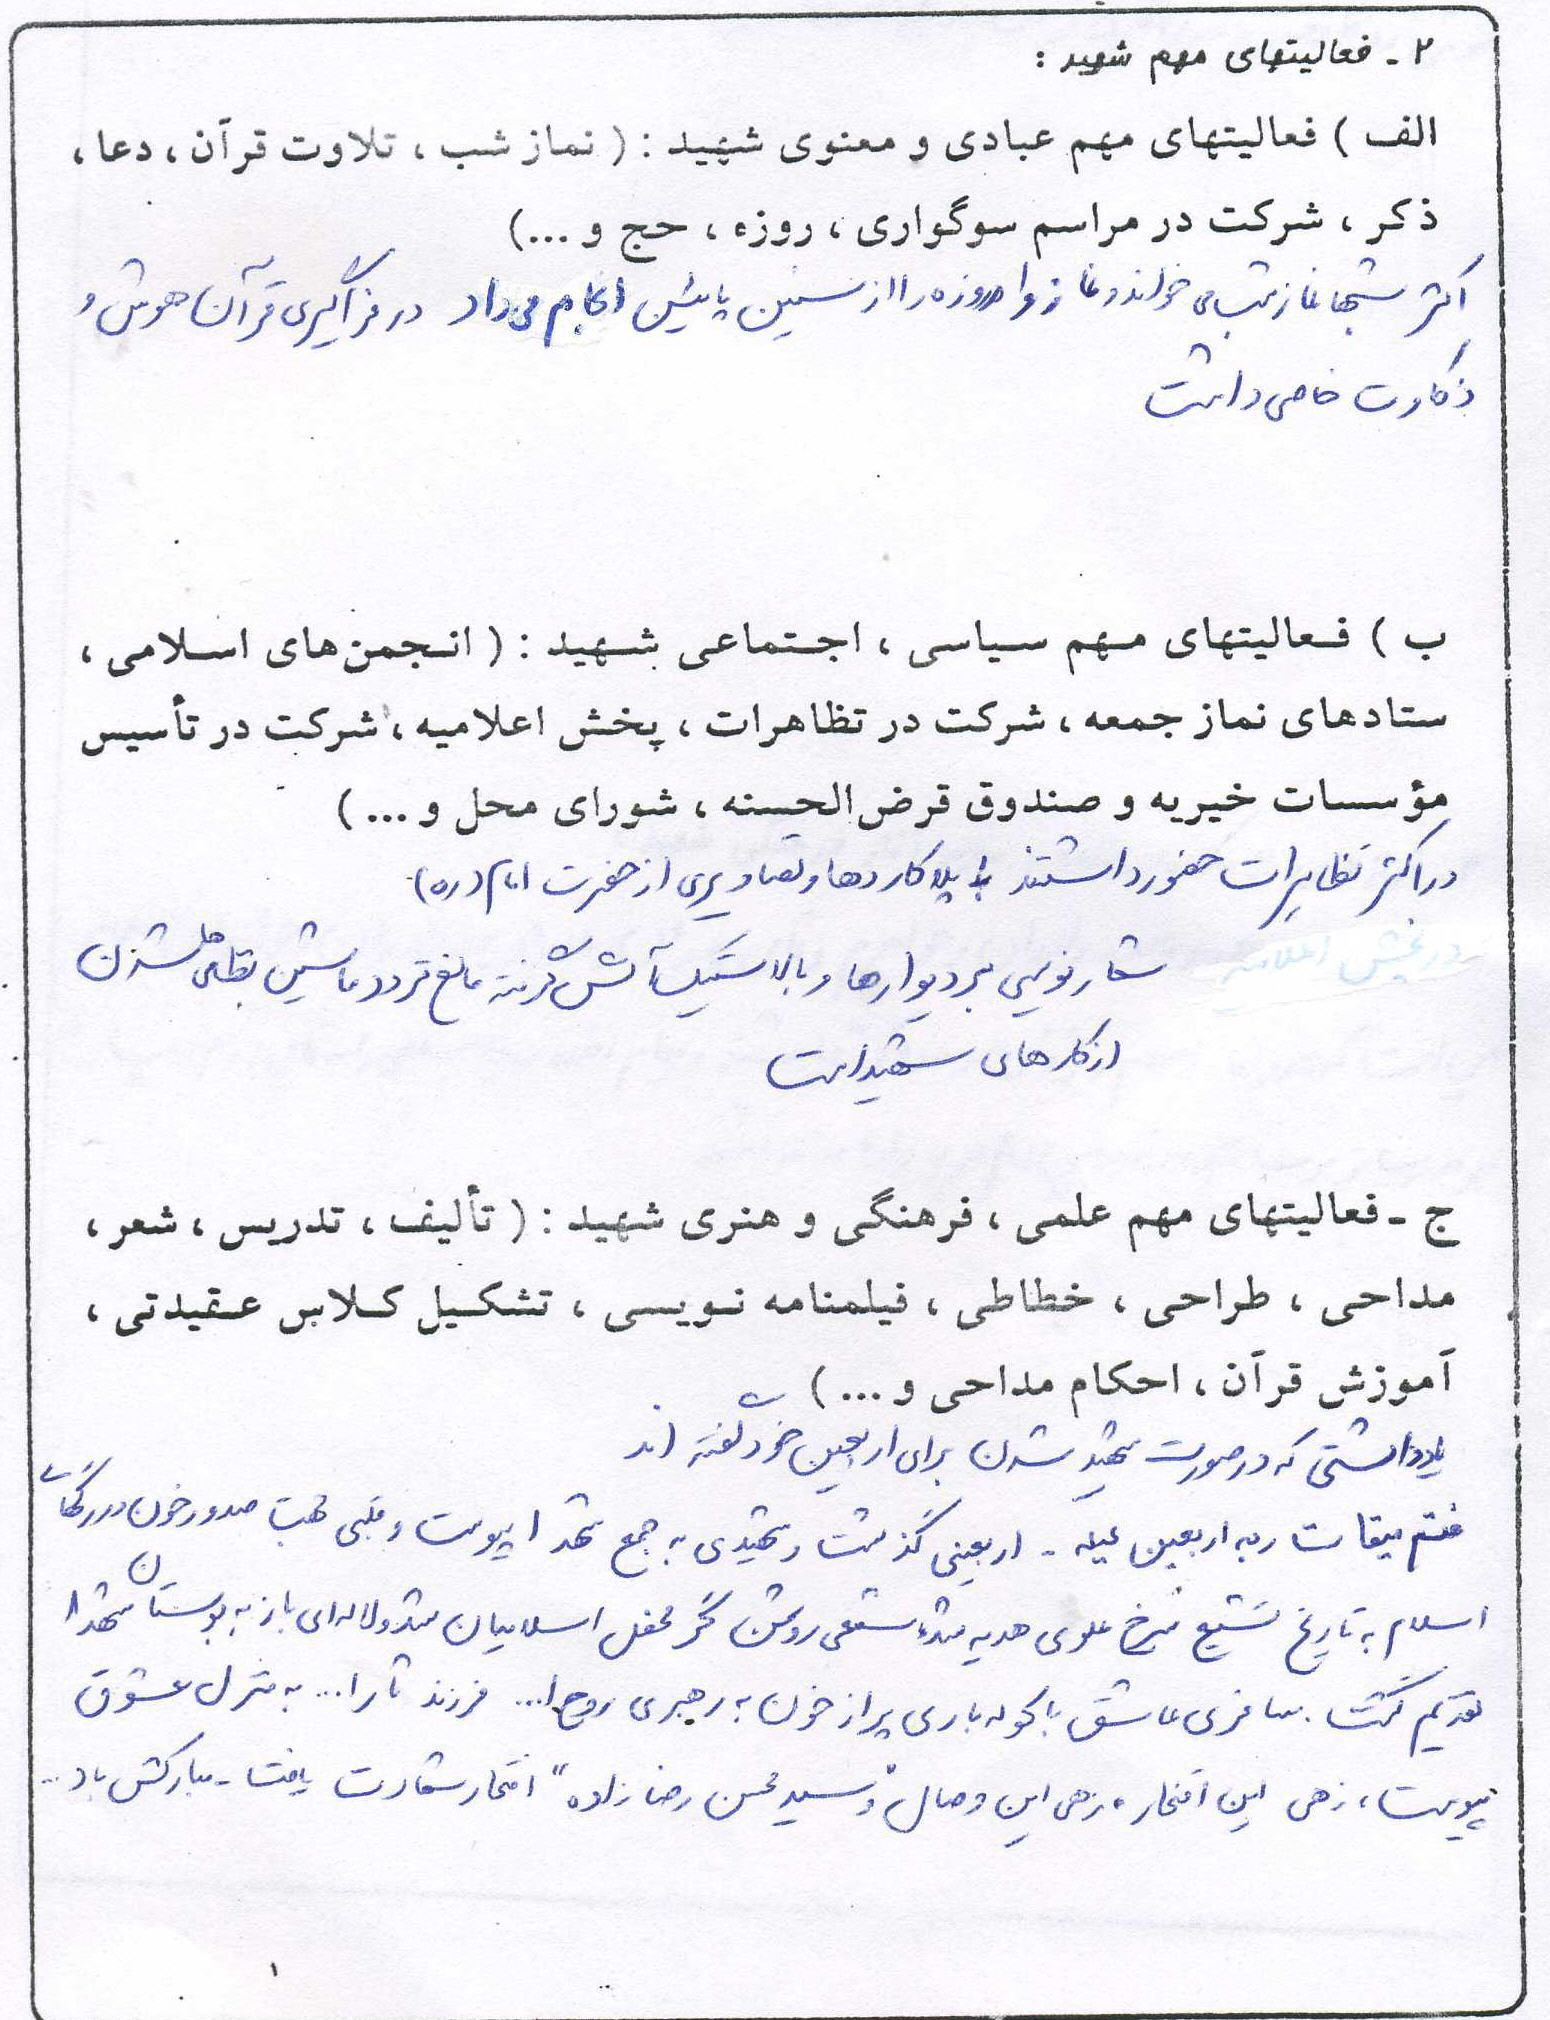 ۲ ـ فعالیتهای مهم شهید :
الف ) فعالیتهای مهم عبادی و معنوی شهید : ( نماز شب ، تلاوت قرآن ، دعا ،
ذکر ، شرکت در مراسم سوگواری ، روزه ، حج و ...)
اکثر شبها نماز شب می خواند و نماز و روزه را از سنین پائین انجام می داد در فراگیری قرآن هوش و
ذکاوت خاصی داشت
ب ) فعالیتهای مهم سیاسی ، اجتماعی شهید : ( انجمن‌های اسلامی ،
ستادهای نماز جمعه ، شرکت در تظاهرات ، پخش اعلامیه ، شرکت در تأسیس
مؤسسات خیریه و صندوق قرض‌الحسنه ، شورای محل و ... )
در اکثر تظاهرات حضور داشتند با پلاکاردها و تصاویری از حضرت امام (ره)
در پخش اعلامیه شعارنویسی بر دیوارها و با لاستیک آتش گرفته مانع تردد ماشین شدن
از کارهای شهید است
ج ـ فعالیتهای مهم علمی ، فرهنگی و هنری شهید : ( تألیف ، تدریس ، شعر ،
مداحی ، طراحی ، خطاطی ، فیلمنامه نویسی ، تشکیل کلاس عقیدتی ،
آموزش قرآن ، احکام مداحی و ... )
یادداشتی که در صورت شهید شدن برای اربعین خودش گفته اند
میقات ربه اربعین لیله - اربعینی گذشت و شهیدی به جمع شهدا پیوست و قلبی خون در رگهای
اسلام به تاریخ تشیع سرخ علوی هدیه شد، شمعی روشن گر محفل اسلامیان شد و لاله‌ای باز به بوستان شهدا
تقدیم گشت . مسافری عاشق با کوله باری پر از خون به رهبری روح ا... فرزند ثارا... به منزل عشوق
پیوست ، زهی این افتخار ، زهی این وصال و "سید محسن رضا زاده" افتخار شهادت یافت - مبارکش باد ...
۱